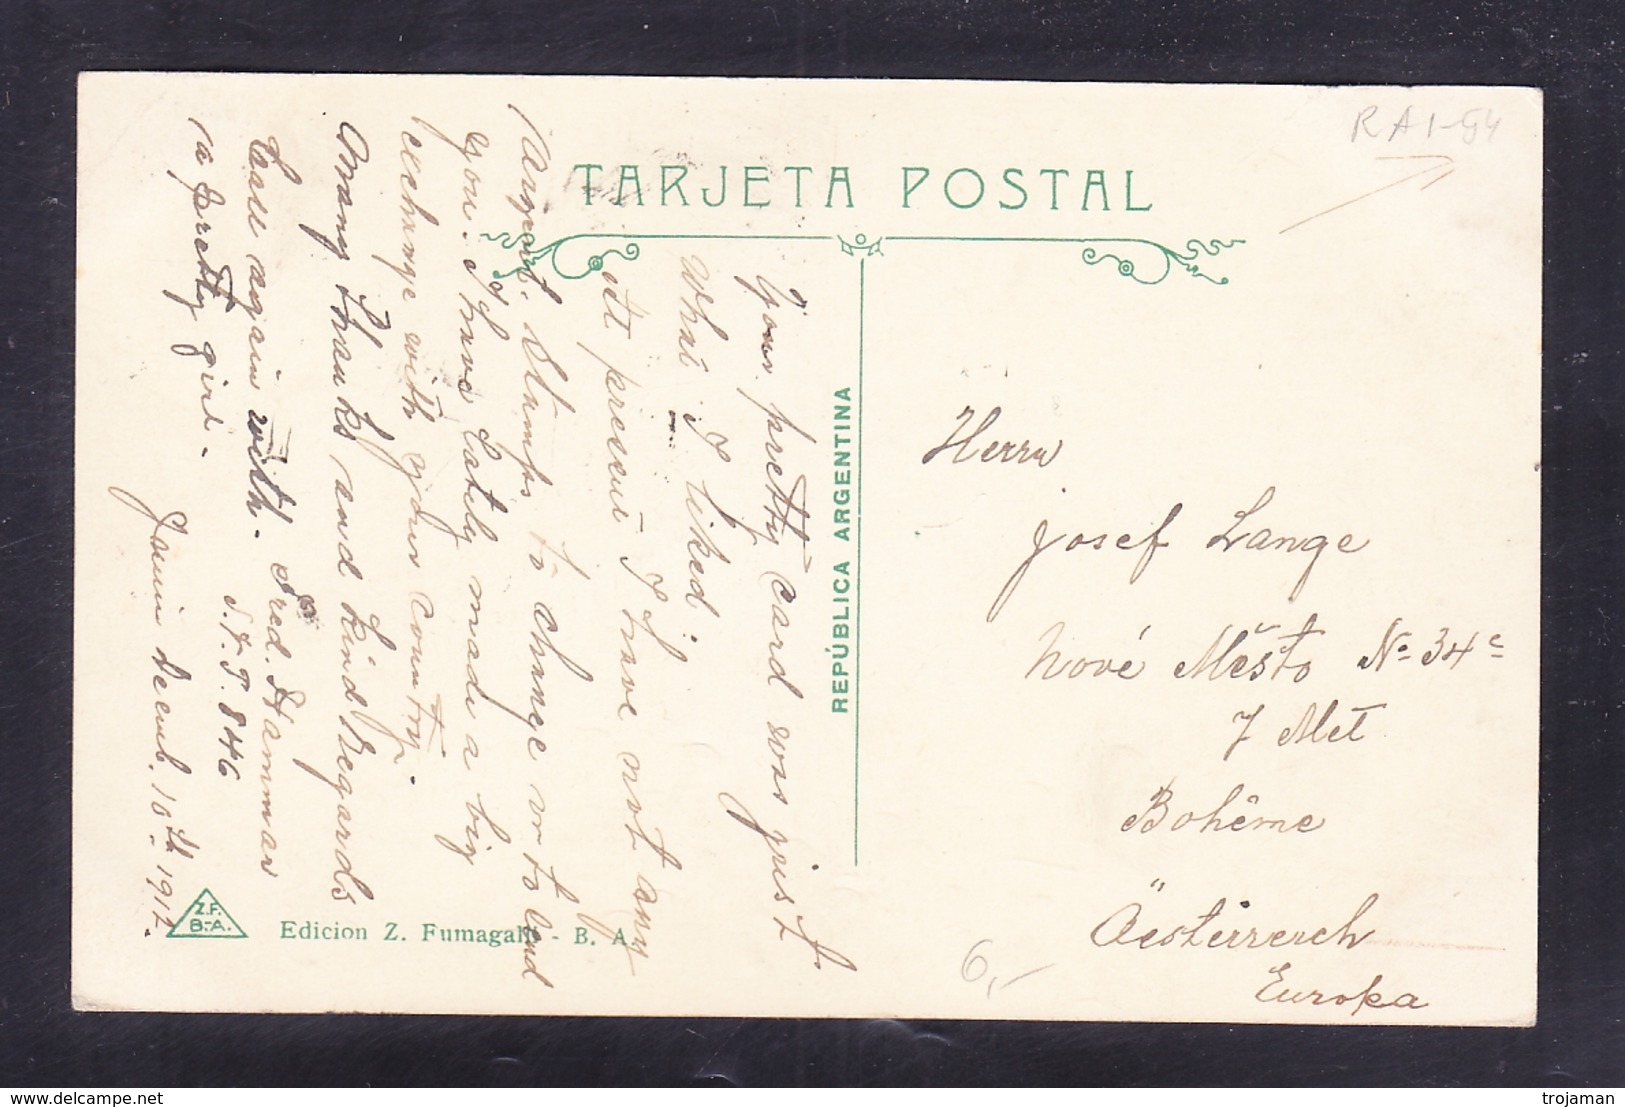 RA1-54
TARJETA POSTAL
REPÚBLICA ARGENTINA
Your pretty card was just
what I liked.
At present I have not any
Argent. Stamps to change or to lend
you. I have lately made a big
exchange with your country.
Many thanks and kind Regards
Call again with.
a pretty girl.
Fred. Hammar
S.V.P. 846
Junin Decemb. 10th 1912.
Herrn
Josef Lange
Nové Město No 34c
7 Met
Bohême
Öesterrerch
Europa
6,-
Z.F.
B.-A.
Edicion Z. Fumagalli - B. A.
delcampe.net
trojaman